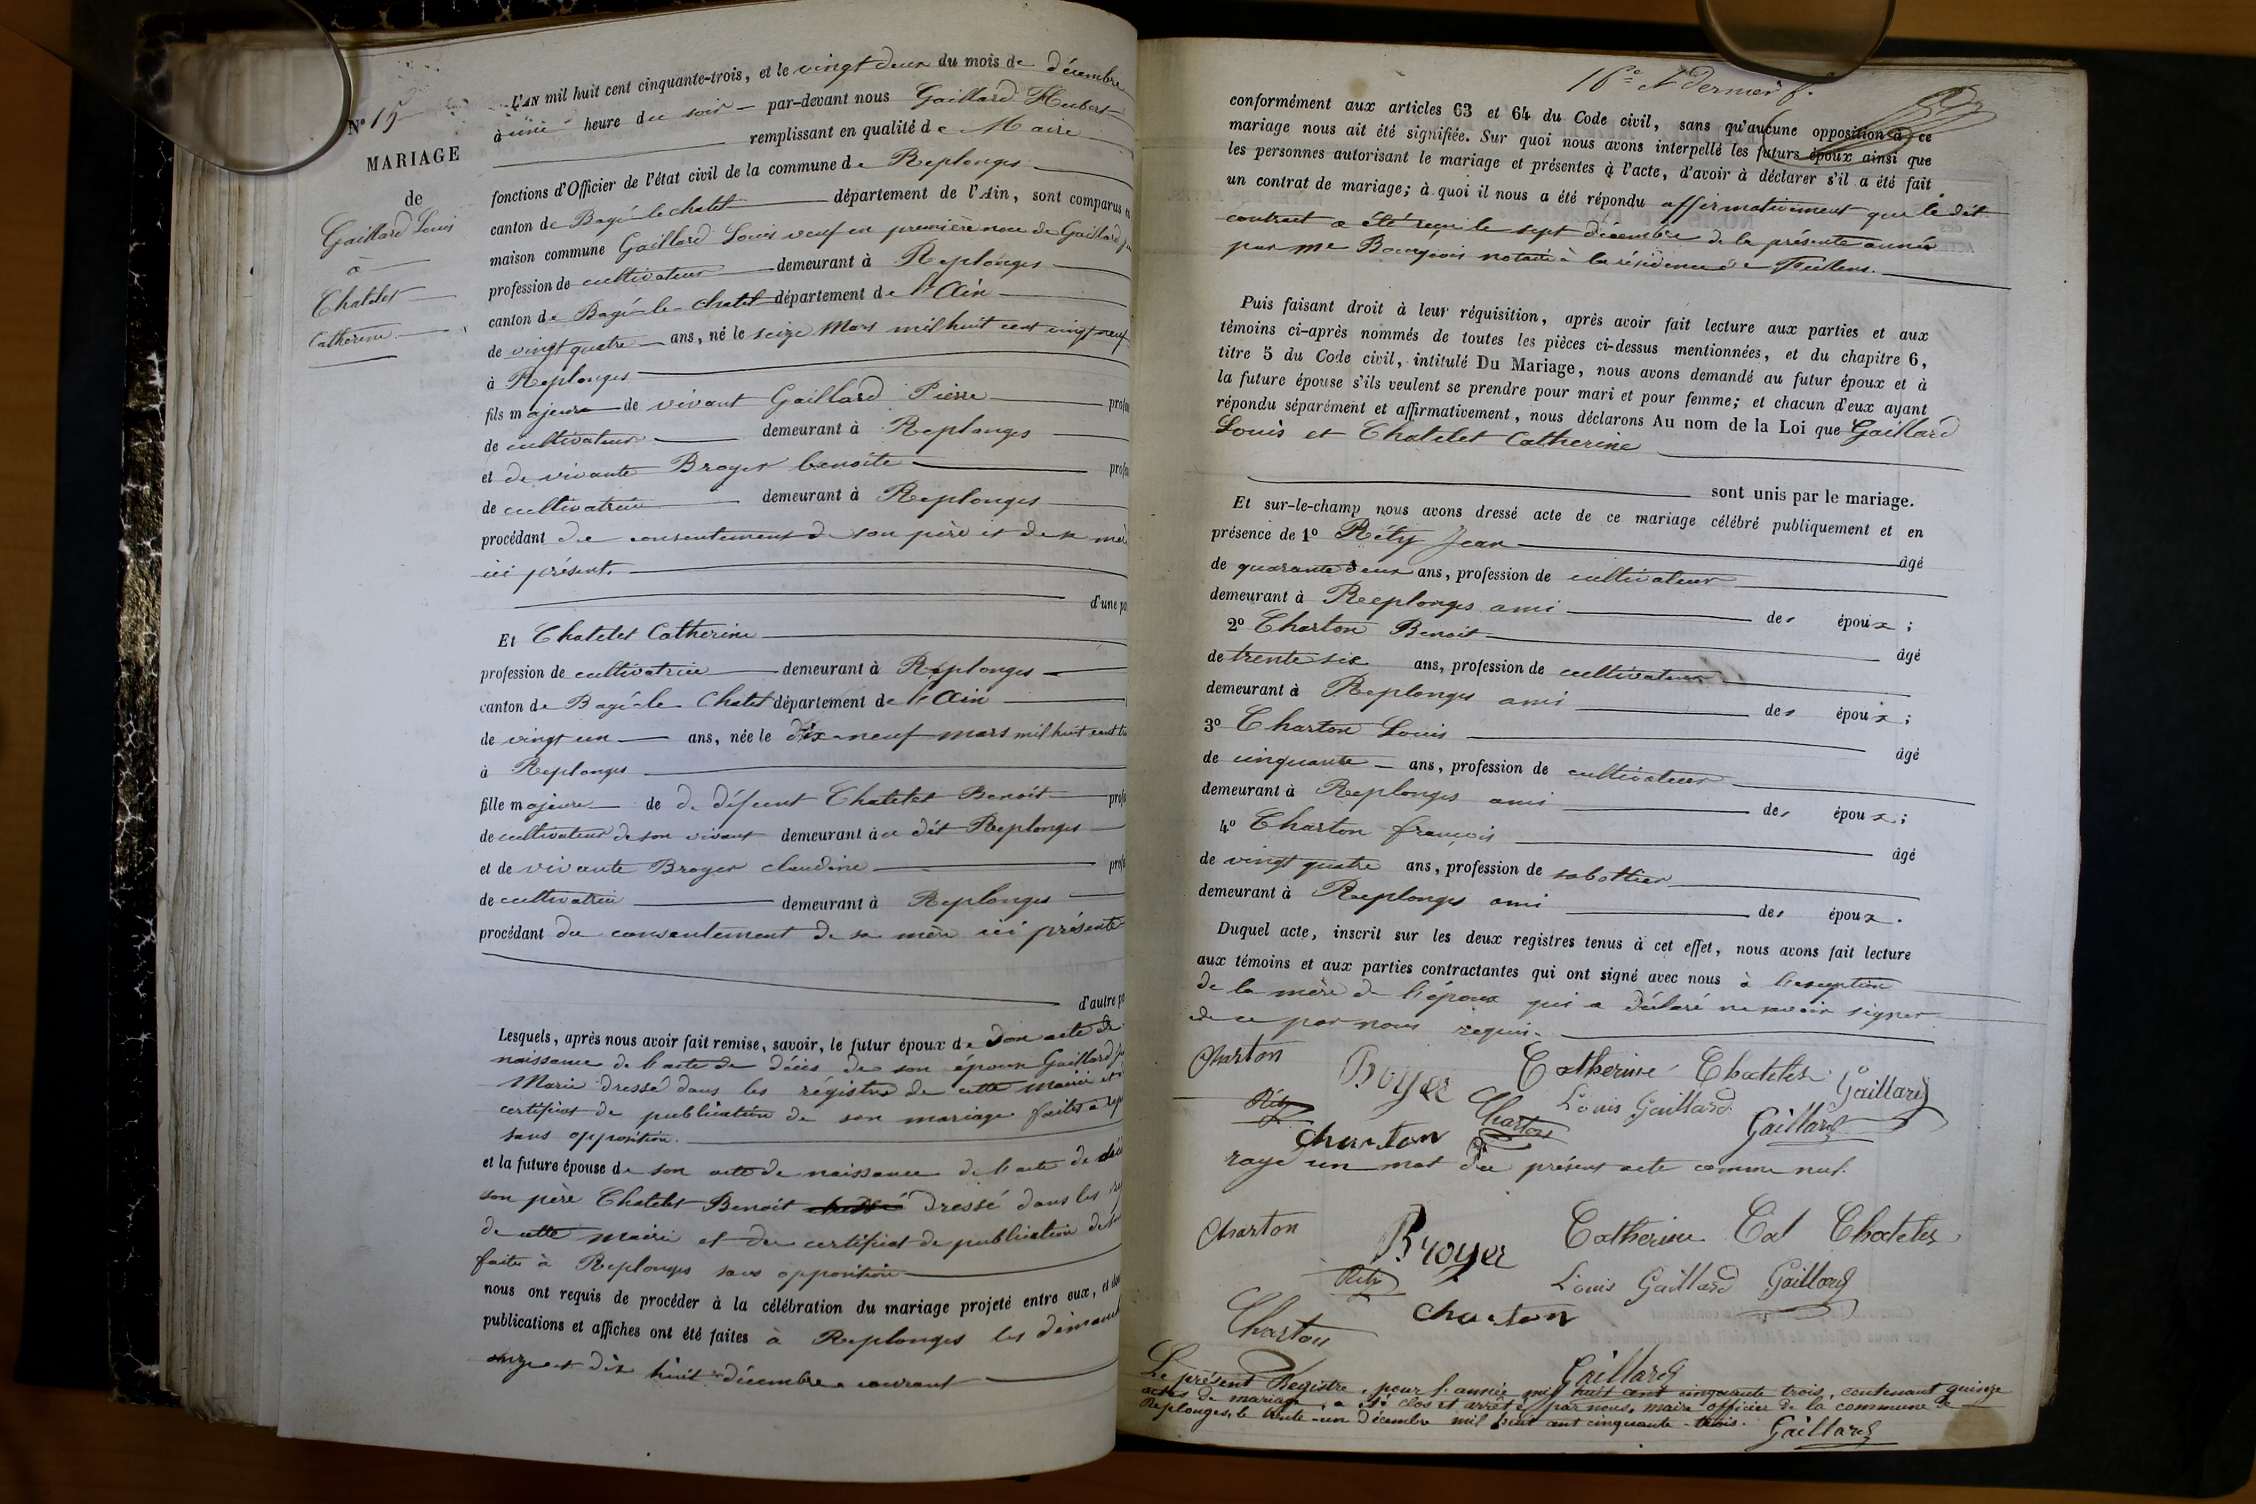 N° 15
MARIAGE
de
Gaillard Louis
à
Chatelet
Catherine
L'AN mil huit cent cinquante-trois, et le vingt deux du mois de décembre
à une heure du soir par-devant nous Gaillard Hubert
remplissant en qualité de Maire
fonctions d'Officier de l'état civil de la commune de Replonges
canton de Bagé-le-chatel département de l'Ain, sont comparus en
maison commune Gaillard Louis veuf en première noce de Gaillard
profession de cultivateur demeurant à Replonges
canton de Bagé-le-chatel département de l'Ain
de vingt quatre ans, né le seize Mars mil huit cent vingt neuf
à Replonges
fils majeur de vivant Gaillard Pierre
de cultivateur demeurant à Replonges
et de vivante Broyer benoite
de cultivatrice demeurant à Replonges
procédant du consentement de son père et de sa mère
ici présents
d'une
Et Chatelet Catherine
profession de cultivatrice demeurant à Replonges
canton de Bagé-le Chatel département de l'Ain
de vingt un ans, née le dix-neuf mars mil huit cent
à Replonges
fille majeure de défunt Chatelet Benoit
de cultivateur de son vivant demeurant au dit Replonges
et de vivante Broyer claudine
de cultivatrice demeurant à Replonges
procédant du consentement de sa mère ici présente
d'autre
Lesquels, après nous avoir fait remise, savoir, le futur époux de son acte de
naissance de l'acte de décès de son épouse Gaillard
Marie dressé dans les régistres de cette mairie et
certificat de publication de son mariage faites à
sans opposition.
et la future épouse de son acte de naissance de l'acte de décès
son père Chatelet Benoit dressé dans les
de cette mairie et du certificat de publication de
faites à Replonges sans opposition
nous ont requis de procéder à la célébration du mariage projeté entre eux, et
publications et affiches ont été faites à Replonges les dimanches
onze et dix huit décembre courant
16e et dernier f.
conformément aux articles 63 et 64 du Code civil, sans qu'aucune opposition à ce
mariage nous ait été signifiée. Sur quoi nous avons interpellé les futurs époux ainsi que
les personnes autorisant le mariage et présentes à l'acte, d'avoir à déclarer s'il a été fait
un contrat de mariage; à quoi il nous a été répondu affirmativement que le dit
contrat a été reçu le sept décembre de la présente année
par me Bourgeois notaire à la résidence de Feillens.
Puis faisant droit à leur réquisition, après avoir fait lecture aux parties et aux
témoins ci-après nommés de toutes les pièces ci-dessus mentionnées, et du chapitre 6,
titre 5 du Code civil, intitulé Du Mariage, nous avons demandé au futur époux et à
la future épouse s'ils veulent se prendre pour mari et pour femme; et chacun d'eux ayant
répondu séparément et affirmativement, nous déclarons Au nom de la Loi que Gaillard
Louis et Chatelet Catherine
sont unis par le mariage.
Et sur-le-champ nous avons dressé acte de ce mariage célébré publiquement et en
présence de 1° Réty Jean âgé
de quarante deux ans, profession de cultivateur
demeurant à Replonges ami des époux;
2° Charton Benoit âgé
de trente six ans, profession de cultivateur
demeurant à Replonges ami des époux;
3° Charton Louis âgé
de cinquante ans, profession de cultivateur
demeurant à Replonges ami des époux;
4° Charton françois âgé
de vingt quatre ans, profession de sabottier
demeurant à Replonges ami des époux.
Duquel acte, inscrit sur les deux registres tenus à cet effet, nous avons fait lecture
aux témoins et aux parties contractantes qui ont signé avec nous à l'exception
de la mère de l'époux qui a déclaré ne savoir signer
de ce par nous requis.
Charton Broyer Catherine Chatelet Gaillard
Réty Charton Louis Gaillard Gaillard
Charton
rayé un mot du présent acte comme nul.
Charton Broyer Catherine Cat Chatelet
Réty Louis Gaillard Gaillard
Charton Charton
Gaillard
Le présent Registre, pour l'année mil huit cent cinquante trois, contenant quinze
actes de mariage, a été clos et arrêté par nous, maire officier de la commune de
Replonges, le trente-un décembre mil huit cent cinquante-trois.
Gaillard